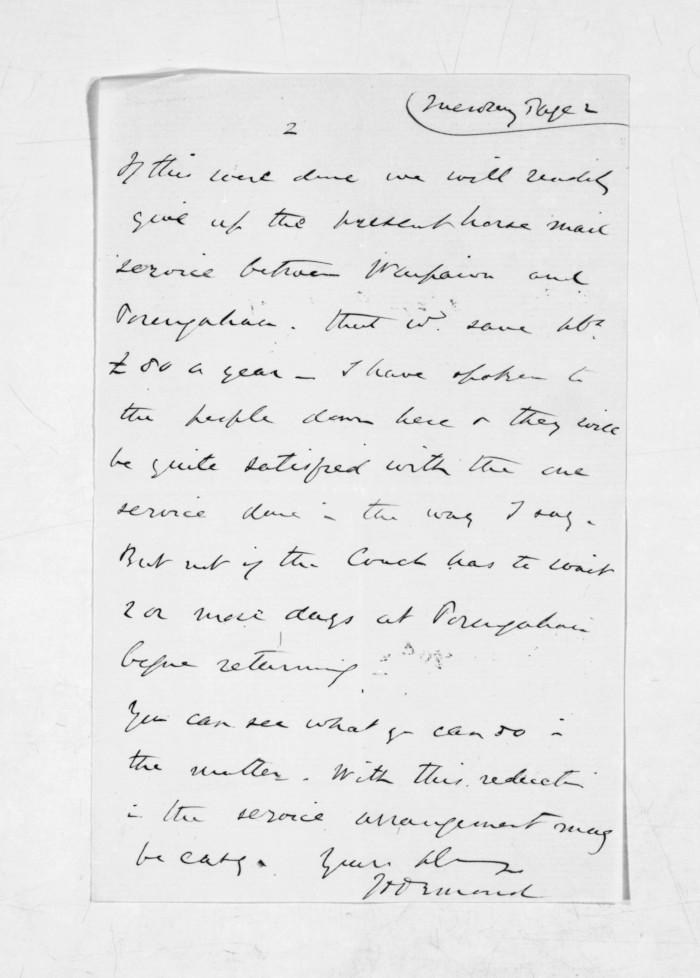 Page 2
2
If this were done we will readily
give up the present horse mail
service between Waipawa and
Porangahau. that wd. save abt
£80 a year – I have spoken to
the people down here & they will
be quite satisfied with the one
service done in the way I say.
But not if the Coach has to wait
2 or more days at Porangahau
before returning
You can see what you can do in
the matter. With this reduction
in the service arrangement may
be easy. Yours
JD Ormond